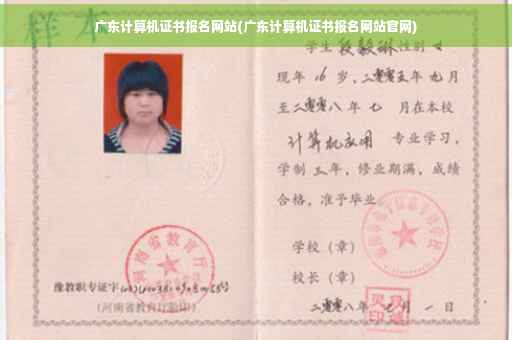 广东计算机证书报名网站(广东计算机证书报名网站官网)
样本
学生 段毅琳 性别 女
现年 16 岁，二零零五年 九 月
至二零零八 年 七 月在本校
计算机应用 专业学习，
学制 三 年，修业期满，成绩
合格，准予毕业。
学校（章）
校长（章）
二零零八年 月 一 日
河南省教育厅
豫教职专证字
(河南省教育厅验印)